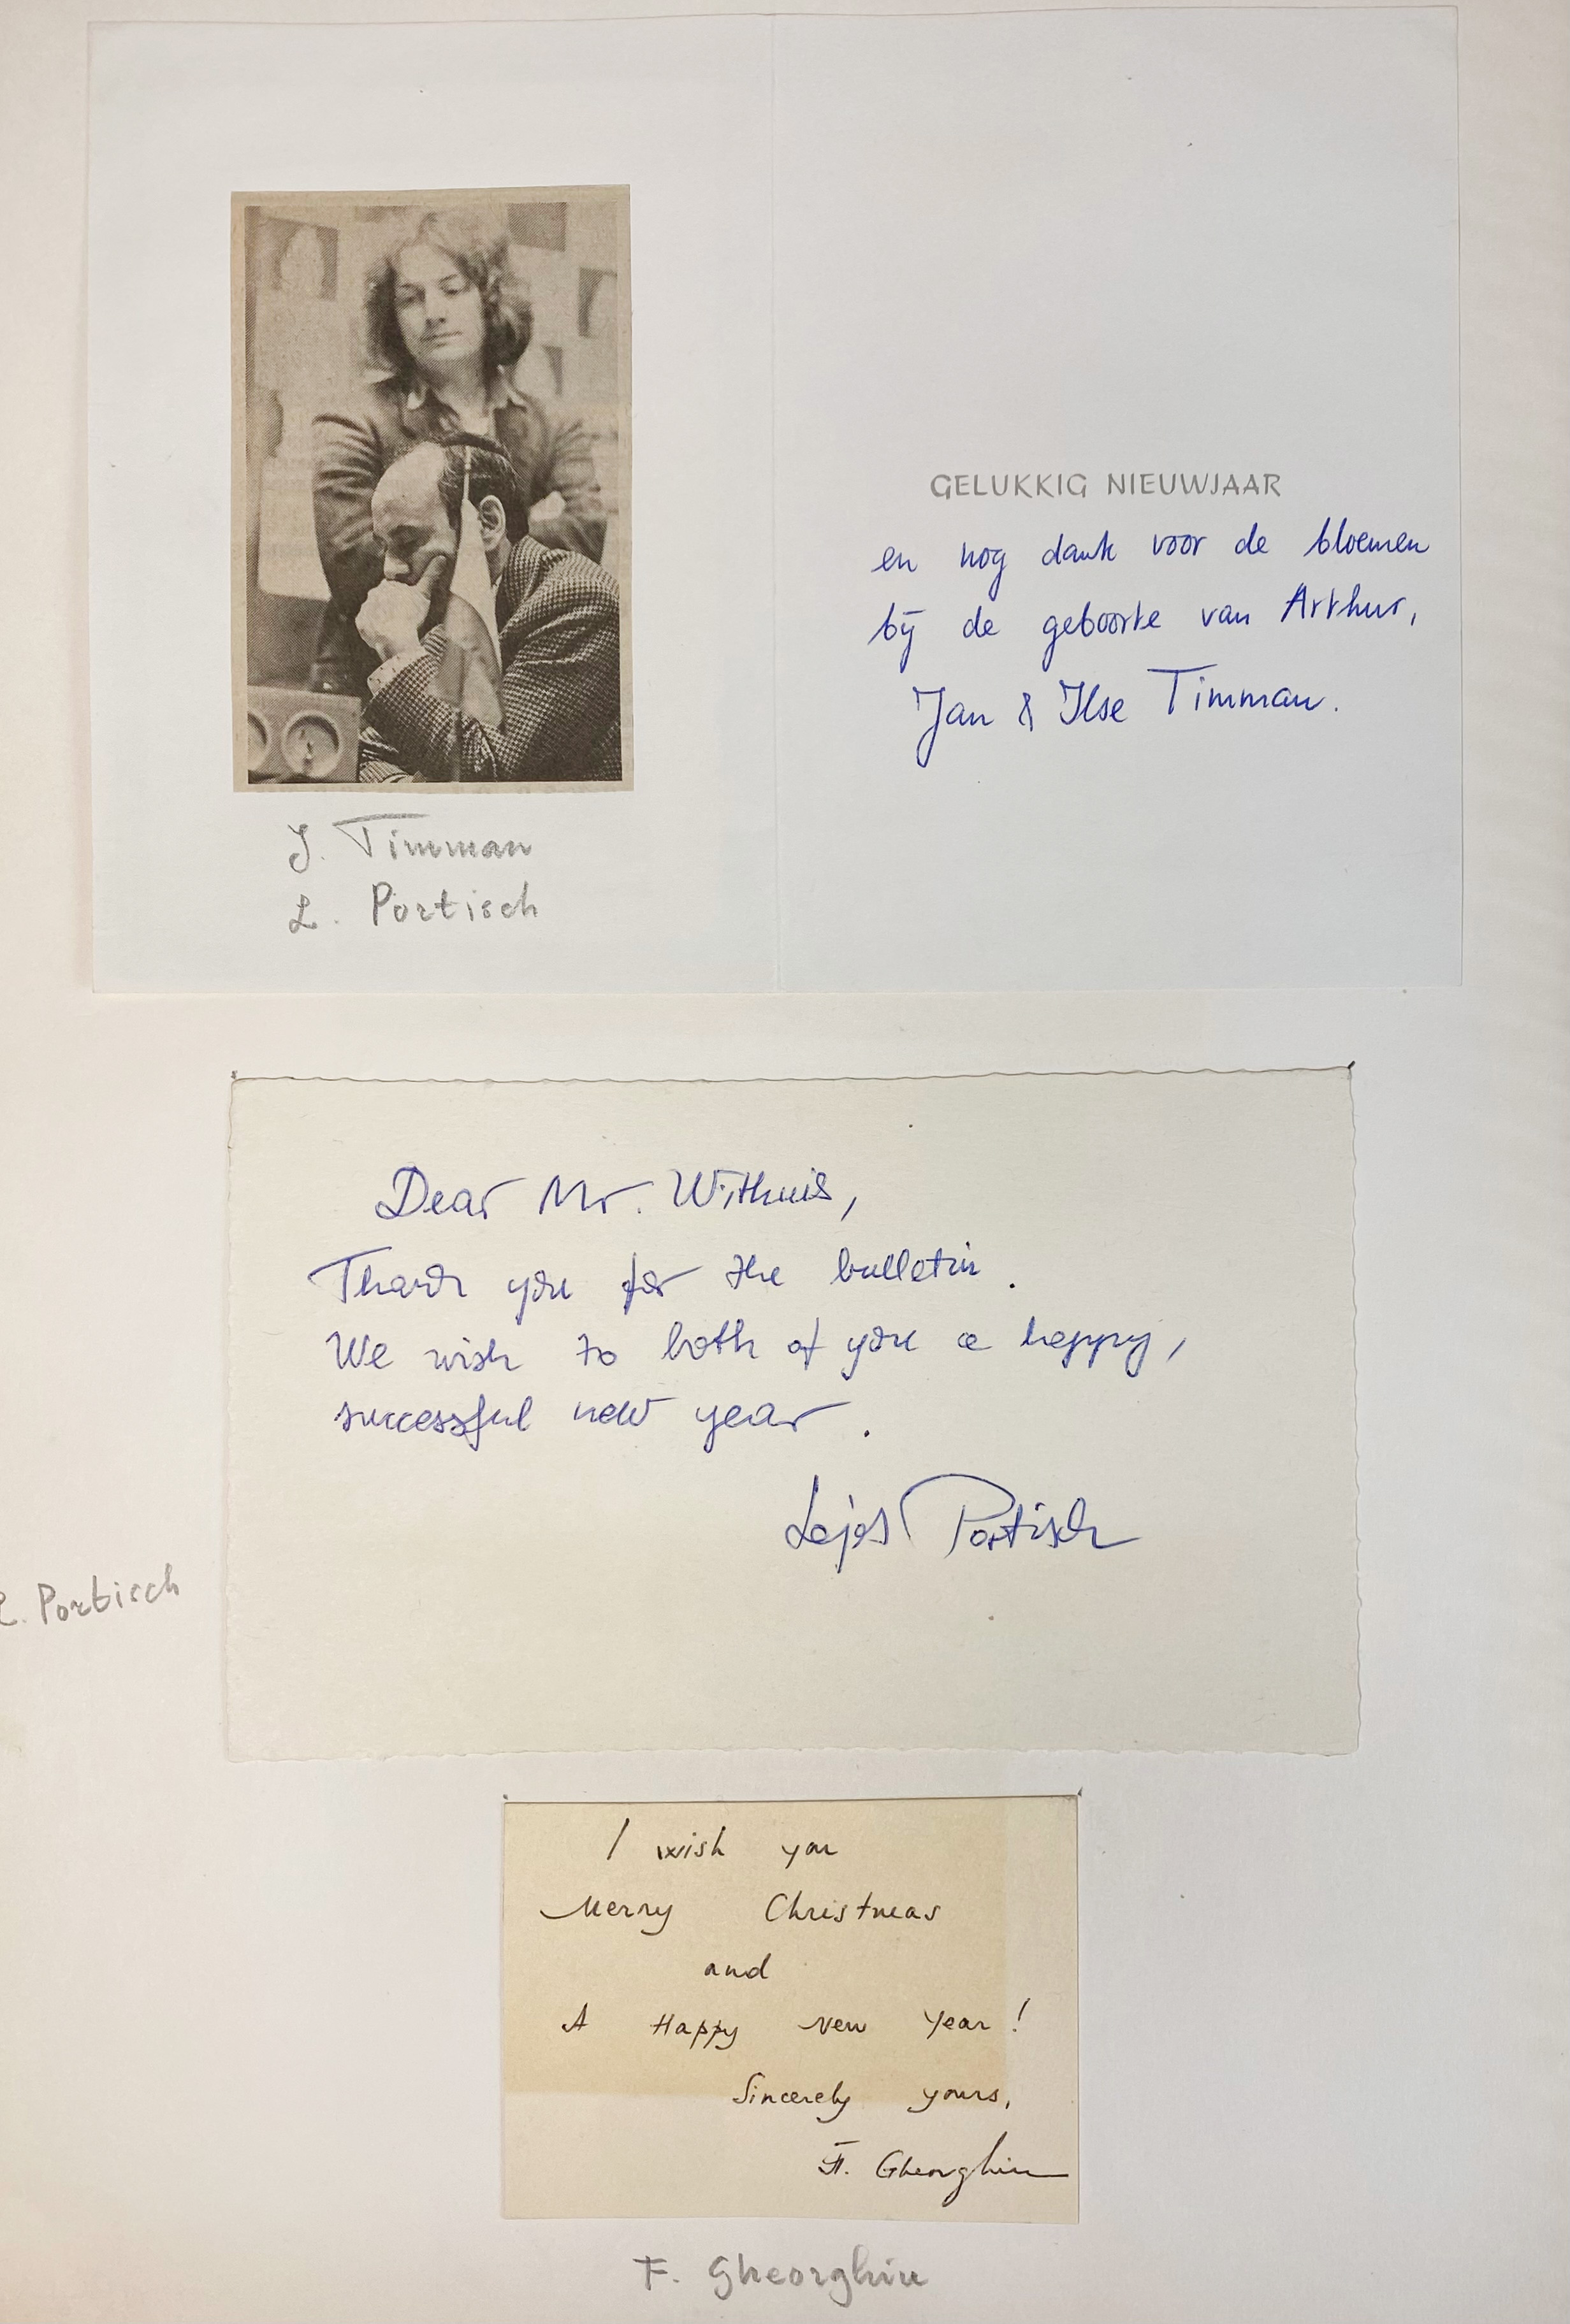 GELUKKIG NIEUWJAAR
en nog dank voor de bloemen
bij de geboorte van Arthur,
Jan & Ilse Timman.
J. Timman
L. Portisch
Dear Mr. Withuis,
Thank you for the bulletin.
We wish to both of you a happy,
successful new year.
Lajos Portisch
L. Portisch
I wish you
Merry Christmas
and
A Happy New Year!
Sincerely yours,
F. Gheorghiu
F. Gheorghiu